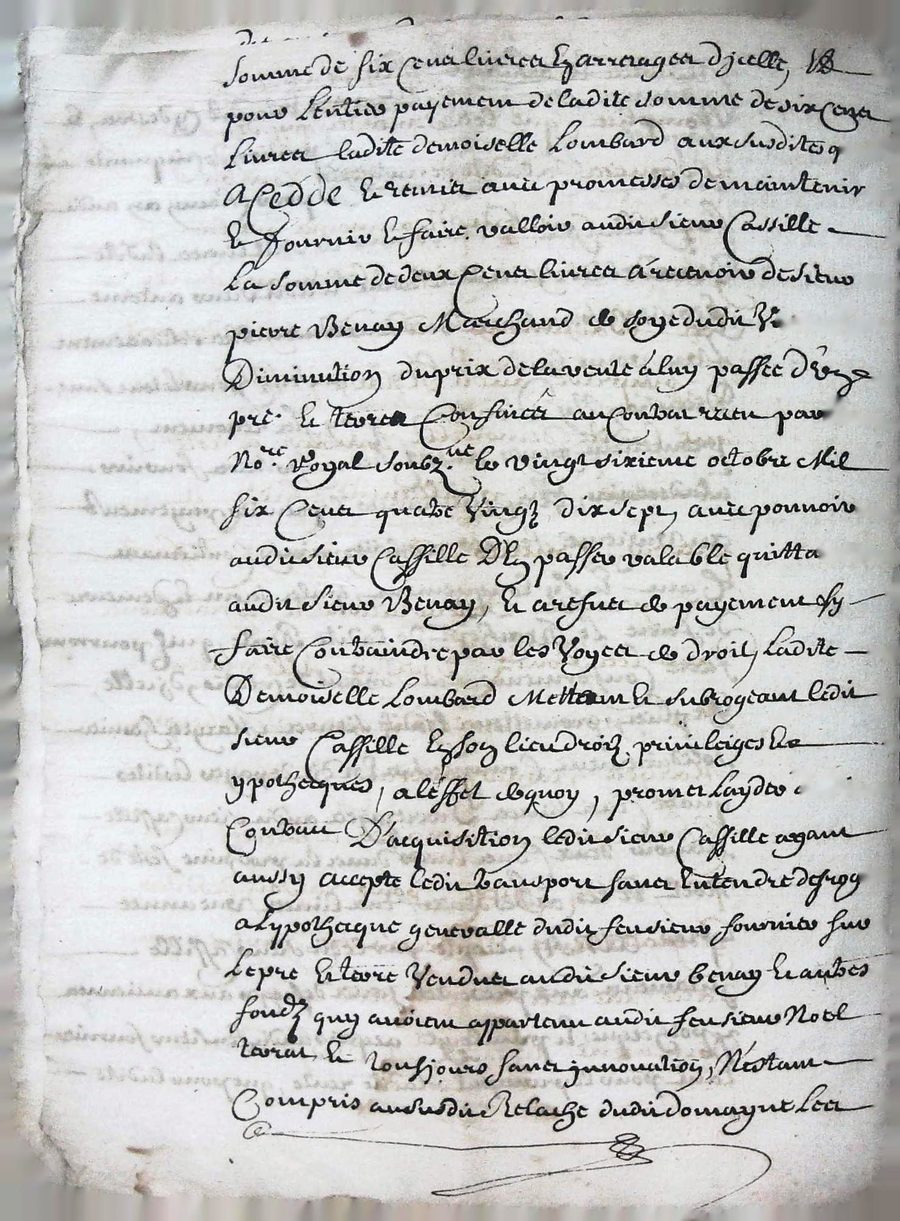 somme de six cens livres et arrerages d'jcelle, Et
pour lentier payement de ladite somme de six cens
Livres ladite demoiselle Lombard aux susdites q
a Cedde et remis avec promesses de maintenir
et fournir et faire valloir audit sieur Cassille
La somme de deux Cens livres a recevoir de sieur
pierre Benay Marchand de soye dudit V.
Diminution du prix de la vente a luy passée d'ung
pré et terres Confinées au Contrat receu par
No.re royal soubz.né le vingt sixieme octobre Mil
six Cens quatre Vingt dix sept, avec pouvoir
audit sieur Cassille D'en passer valable quitta
audit sieur Benay, et a refus de payement l'y
faire Contraindre par les Voyes de droit, Ladite
Demoiselle Lombard Mettant et subrogeant ledit
sieur Cassille en son lieu droitz privileiges et
ypothecques, a l'éffet de quoy, promet layder
Contrat D'acquisition ledit sieur Cassille ayant
aussy accepte ledit transport sans Entendre desrog
a Lypothecque generalle dudit feu sieur fournier sur
Le pre et terre Vendues audit sieur benay et autres
fondz quy avoient appartenu audit feu sieur Noel
terrat et tousjours sans jnnovation, N'éstant
Compris au susdit Relache dudit domayne Les